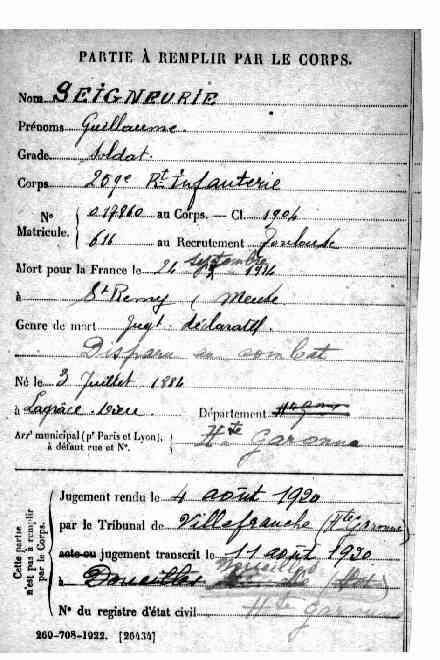 PARTIE À REMPLIR PAR LE CORPS.
Nom SEIGNEURIE
Prénoms Guillaume.
Grade Soldat.
Corps 209e Rt Infanterie
N° Matricule. { 017860 au Corps. — Cl. 1904
616 au Recrutement Toulouse
Mort pour la France le 24 septembre 1914
à St Remy ( Meuse
Genre de mort Jugt. déclaratif.
Disparu en combat
Né le 3 Juillet 1884
à Lagrâce-Dieu. Département
Arrt municipal (pr Paris et Lyon), à défaut rue et N°. } Hte Garonne
Cette partie n'est pas à remplir par le Corps.
Jugement rendu le 4 août 1920
par le Tribunal de Villefranche (Hte Garonne)
acte ou jugement transcrit le 11 août 1920
à
N° du registre d'état civil Hte Garonne
260-708-1922. [26434]